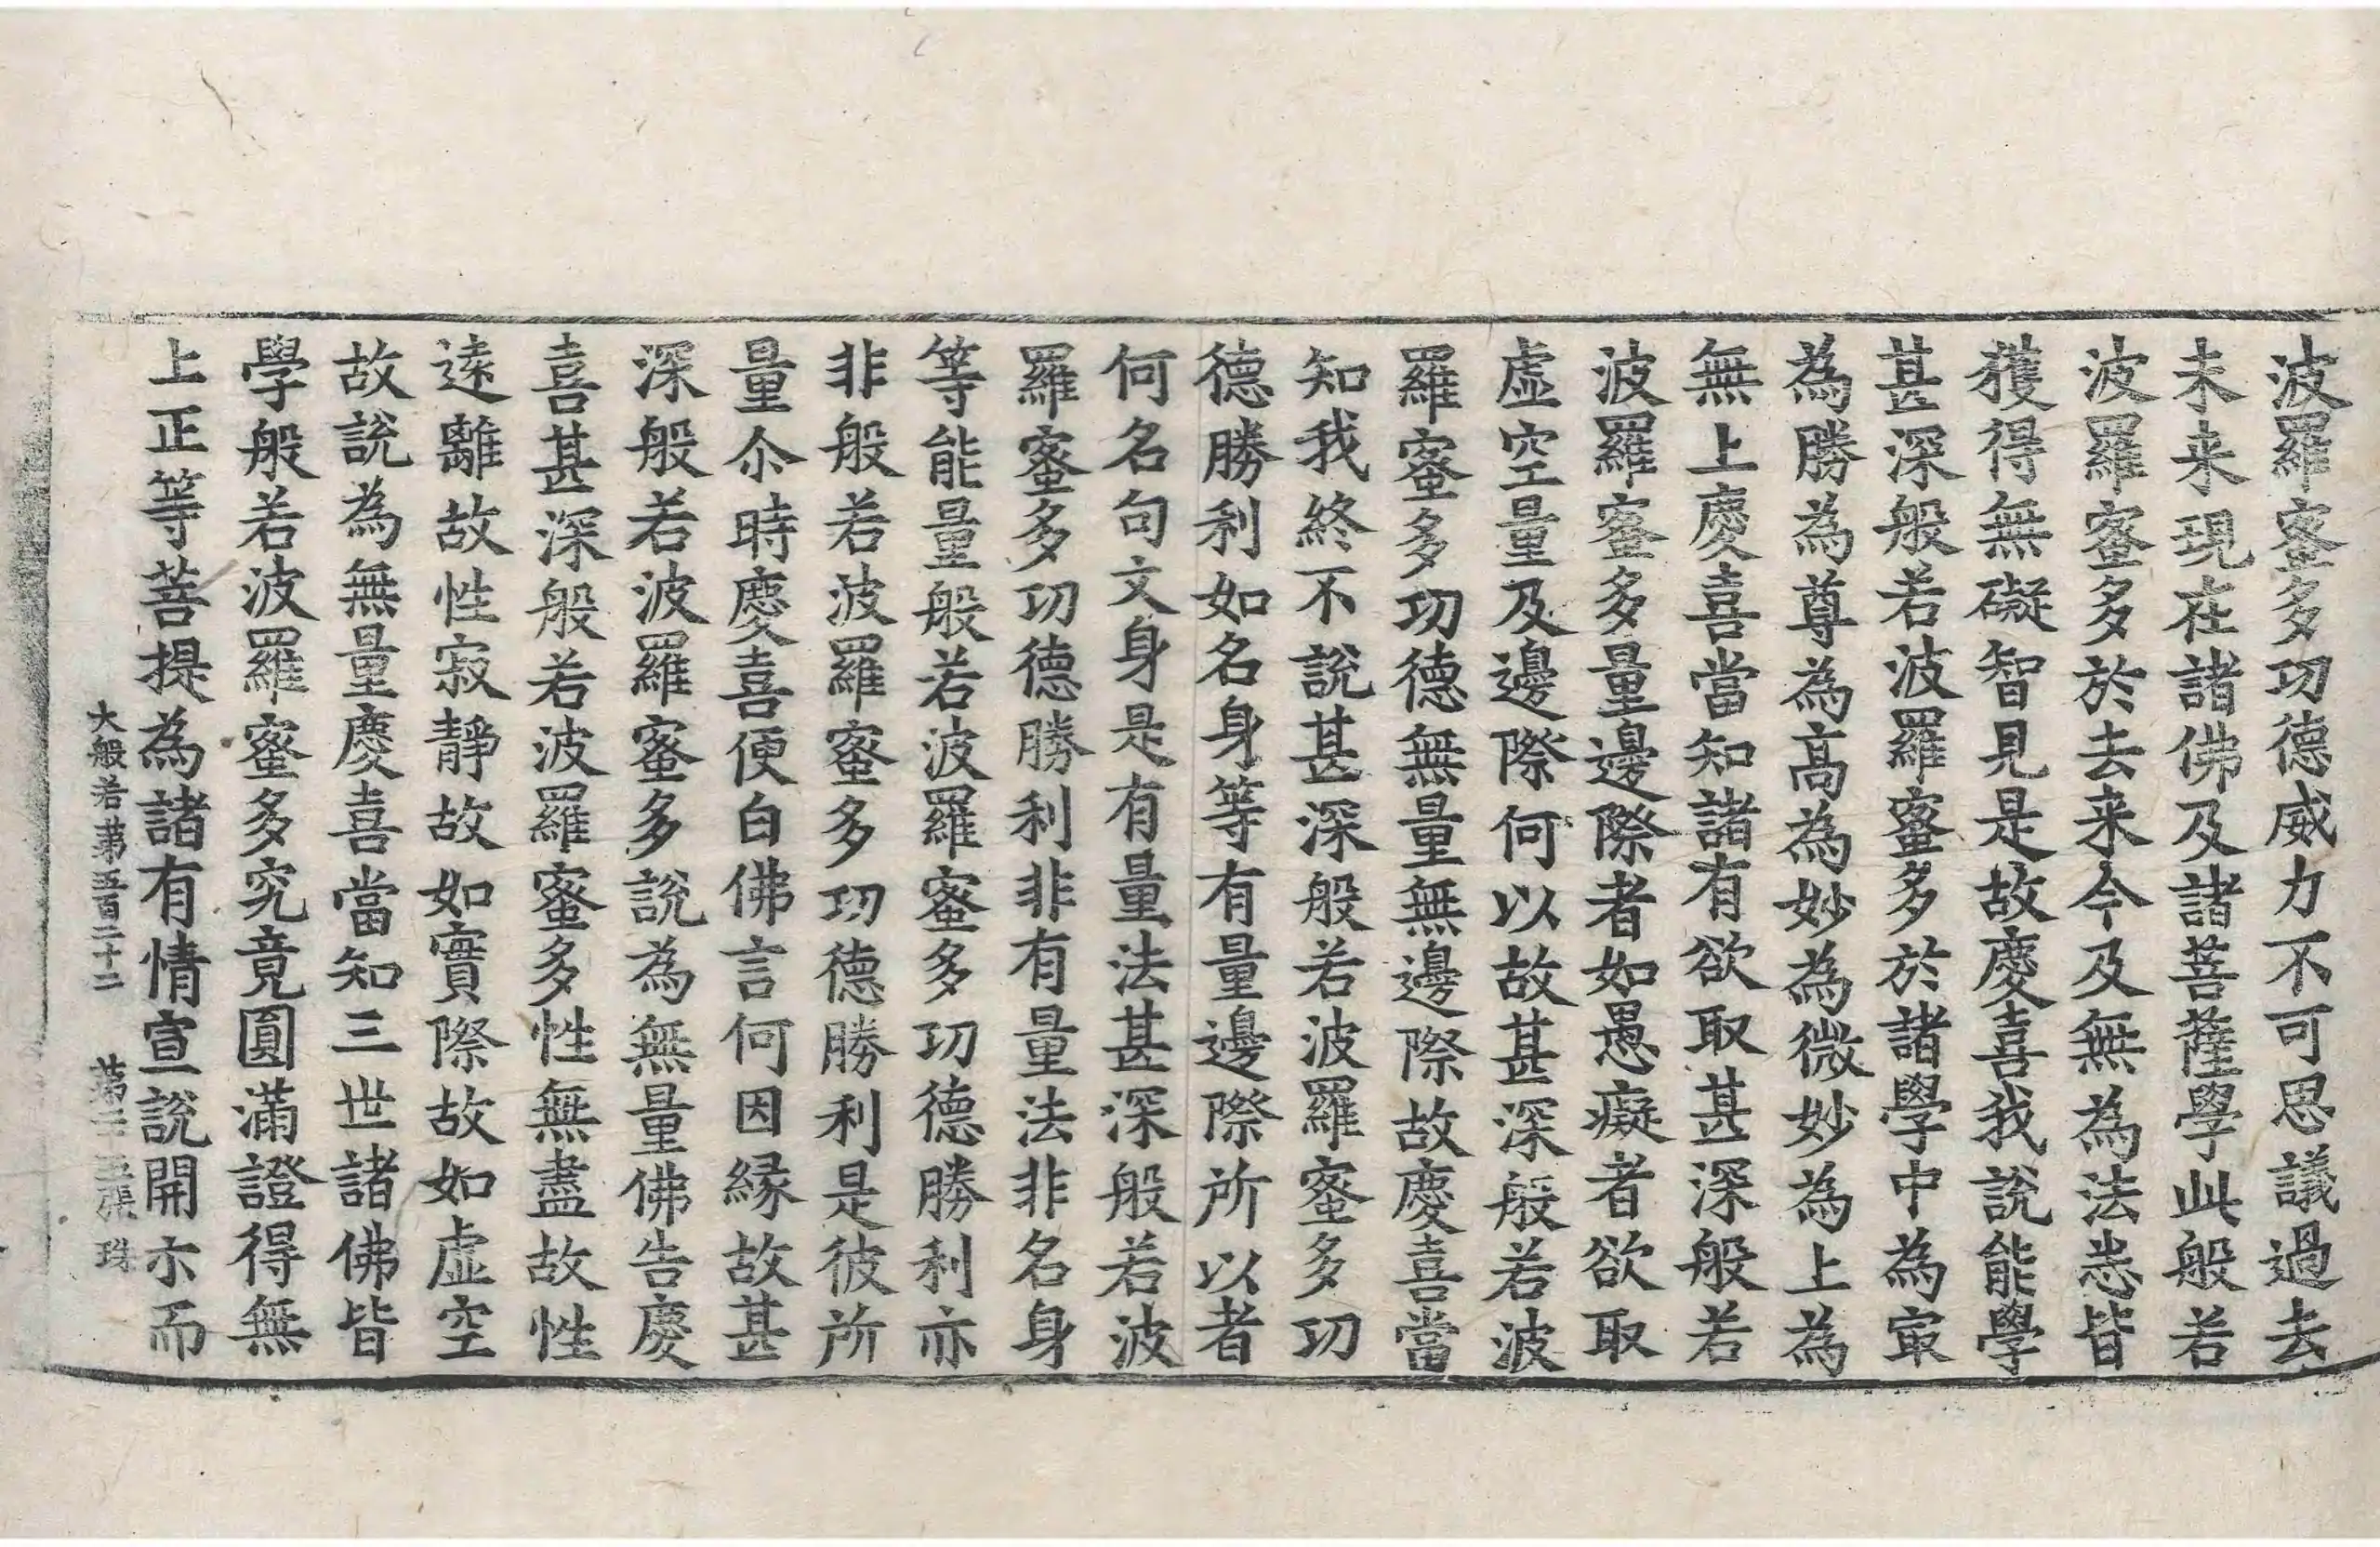 波羅蜜多功德威力不可思議過去
未来現在諸佛及諸菩薩學此般若
波羅蜜多於去来今及無為法悉皆
獲得無礙智見是故慶喜我說能學
甚深般若波羅蜜多於諸學中為㝡
為勝為尊為高為妙為微妙為上為
無上慶喜當知諸有欲取甚深般若
波羅蜜多量邊際者如愚癡者欲取
虛空量及邊際何以故甚深般若波
羅蜜多功德無量無邊際故慶喜當
知我終不說甚深般若波羅蜜多功
德勝利如名身等有量邊際所以者
何名句文身是有量法甚深般若波
羅蜜多功德勝利非有量法非名身
等能量般若波羅蜜多功德勝利亦
非般若波羅蜜多功德勝利是彼所
量尒時慶喜便白佛言何因緣故甚
深般若波羅蜜多說為無量佛告慶
喜甚深般若波羅蜜多性無盡故性
遠離故性寂靜故如實際故如虛空
故說為無量慶喜當知三世諸佛皆
學般若波羅蜜多究竟圓滿證得無
上正等菩提為諸有情宣說開示而
大般若第五百二十二 第二十三張 珠